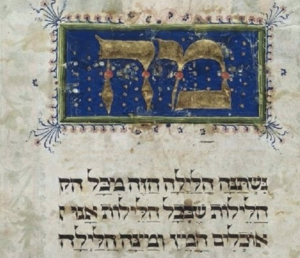 מה
נשתנה הלילה הזה מכל
הלילות שבכל הלילות אנו
אוכלים חמץ ומצה הלילה